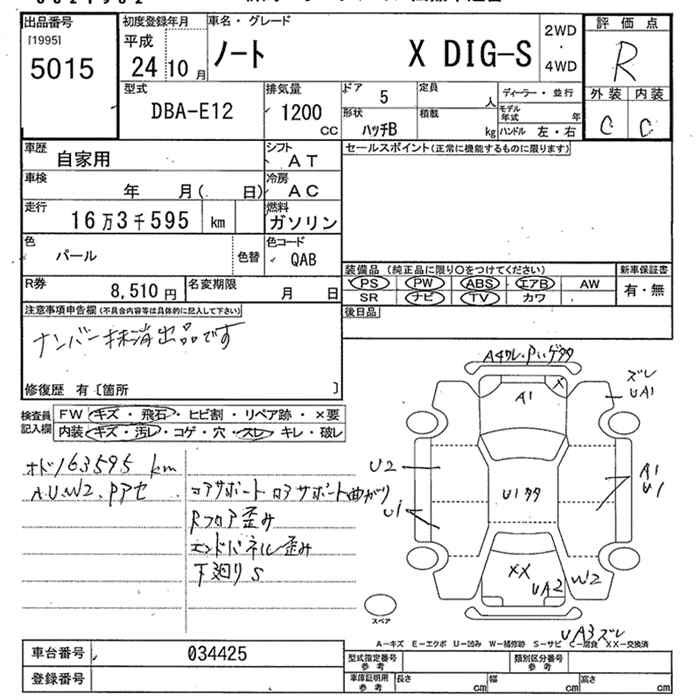 出品番号
[1995]
5015
初度登録年月
平成
24 10 月
車名・グレード
ノート X DIG-S
2WD
・
4WD
評価点
R
外装 内装
C C
型式
DBA-E12
排気量
1200
CC
ドア
5
定員
人
形状
ハッチB
積載
kg
ディーラー・並行
モデル
年式 年
ハンドル 左・右
車歴
自家用
シフト
AT
セールスポイント(正常に機能するものに限ります)
車検
年 月( 日)
冷房
AC
走行
16万3千595 km
燃料
ガソリン
色
パール
色替
色コード
QAB
R券
8,510円
名変期限
月 日
装備品 (純正品に限り○をつけてください)
新車保証書
PS PW ABS エアB AW
SR ナビ TV カワ
有・無
後日品
注意事項申告欄(不具合内容等は具体的に記入して下さい)
ナンバー抹消出品です
修復歴 有 [箇所 ]
検査員
記入欄
FW キズ・飛石・ヒビ割・リペア跡・×要
内装 キズ・汚レ・コゲ・穴・スレ・キレ・破レ
オド163595 km
A.U.W2.Pアセ
コアサポート ロアサポート曲がり
Rフロア歪み
エンドパネル歪み
下廻りS
A4ワレ・Pii・ゲタタ
A1
X
ズレ
UA1
U2
U1
U1タタ
A1
U1
XX
UA2
W2
UA3ズレ
スペア
A−キズ E−エクボ U−凹み W−補修跡 S−サビ C−腐食 XX−交換済
車台番号
034425
登録番号
型式指定番号
参考
類別区分番号
参考
車庫証明用
参考
長さ cm
幅 cm
高さ cm